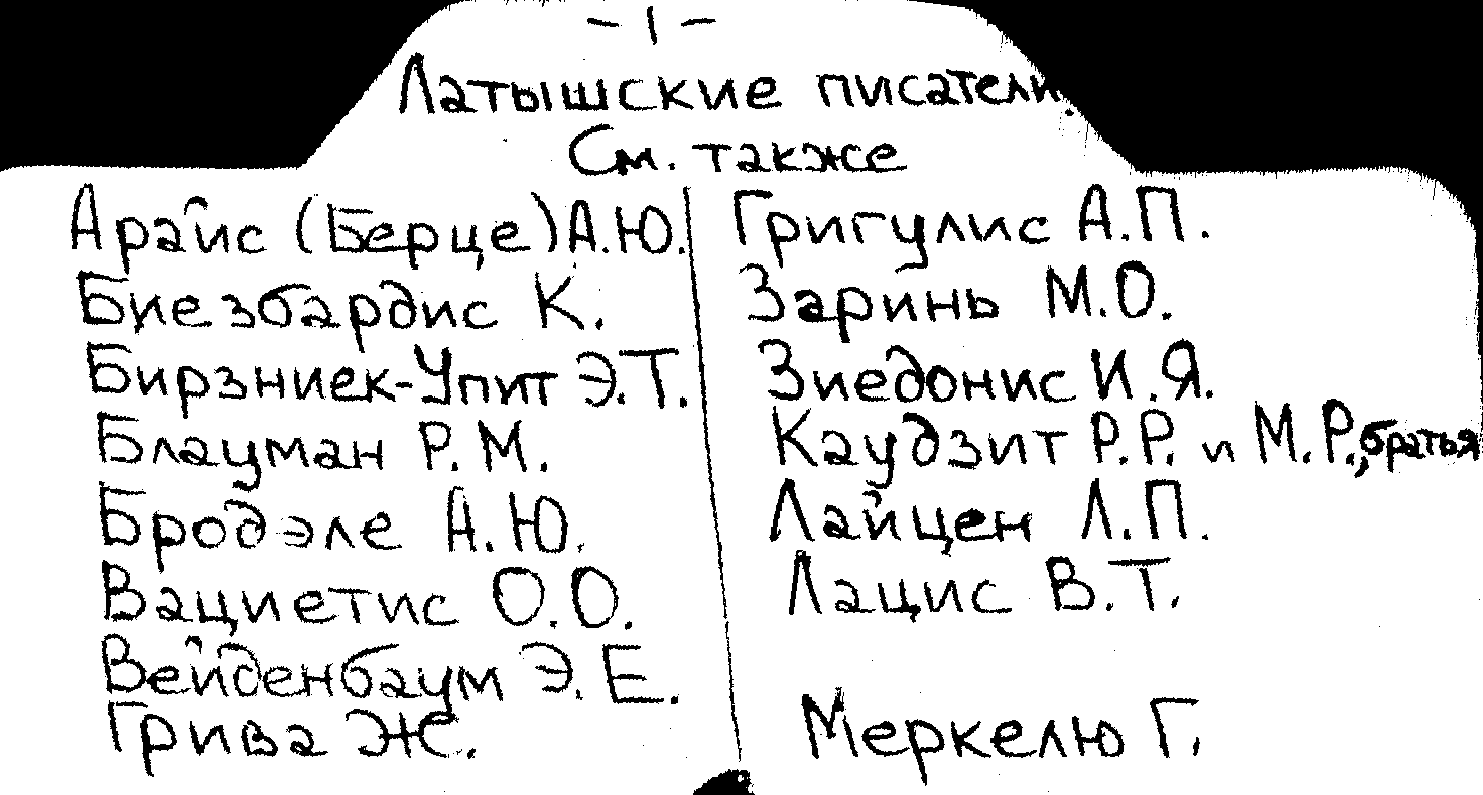 - 1 -
Латышские писатели.
См. также
Арайс (Берце) А.Ю.
Биезбардис К.
Бирзниек-Упит Э.Т.
Блауман Р.М.
Бродэле А.Ю.
Вациетис О.О.
Вейденбаум Э.Е.
Грива Ж.
Григулис А.П.
Заринь М.О.
Зиедонис И.Я.
Каудзит Р.Р. и М.Р., братья
Лайцен Л.П.
Лацис В.Т.
Меркелю Г.